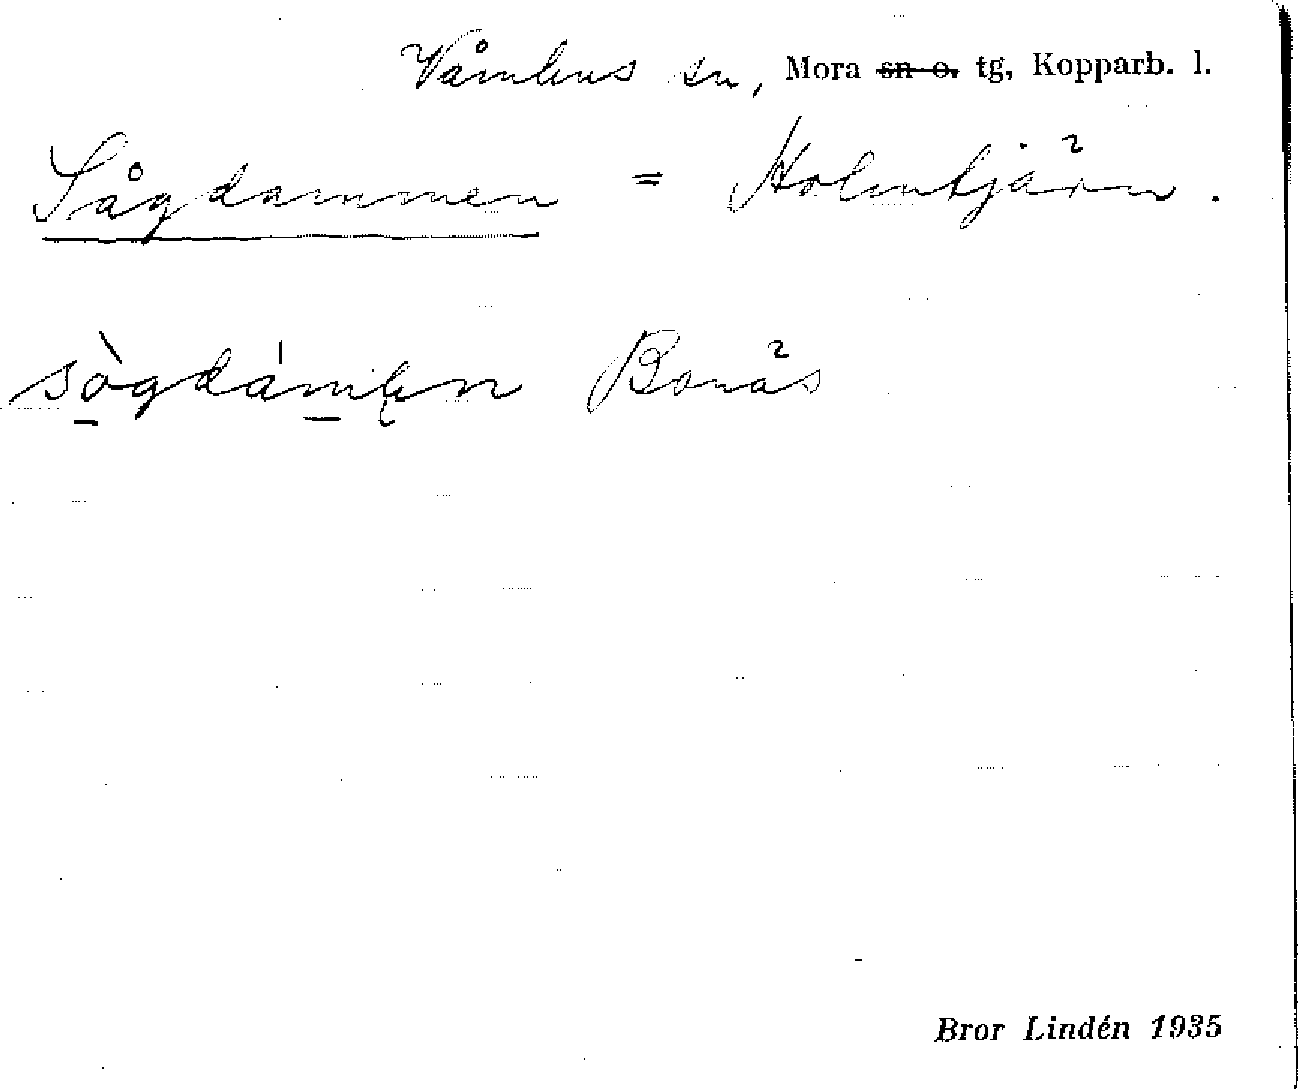 Våmhus sn, Mora ~~sn o.~~ tg, Kopparb. l.
Sågdammen = Holmtjärn.
Bonäs
Bror Lindén 1935